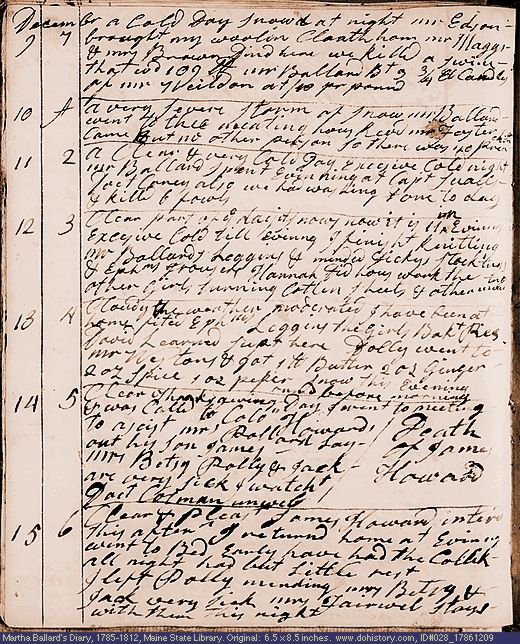 December a Cold Day Snowd at night mr Edson
9 7 brought my woolin Cloath hom mr Magg
& mrs Brown Dind here we killd a swine
that wd 109 lb mr Ballard Bt 9 3/4 lb Candls
of mr Weildon at / pr pound
10 A a very severe storm of Snow mr Ballard
went to the meating hous Revd mr Foster
Came But no other person so there was no
11 2 a Clear & very Cold Day Excesive Cold night
mr Ballard spent Evinning at Capt Sualls
Doct Coney also we had washing done to day
& killd 6 fowls
12 3 Clear part of ye day it snows now it is 11 h Evinng
Excesive Cold till Evinng I have knitting
mr Ballards Leggins & minded Jickys Stockings
& Ephms Trousers Hannah did hous work the
other Girls turning Cotten Sheets & other
13 4 Cloudy the weather moderated I have been at
home futed Ephms Leggins the girls Bakt Pies
Davd Learned supt here Dolly went to
mr Westons & got 1 lb Butter 2 oz Ginger
2 oz Spice 1 oz peper Snow this Evening
14 5 Clear Thanksgiving Day I went to meeting
& was Calld to Colo Howards before morning
to asist mrs Pollard Lay / Death
out his son James / of James
mrs Betsy Polly & Jack / Howard
are very sick I watcht
Doct Colman unwell
15 6 Clear & Pleast James Howard interd
this after n I returned home at Evinng
went to Bed Early have had the Collik
all night had but little rest
I left Polly mending mrs Betsy &
Jack very sick mrs Fairwel stays
with them this night
Martha Ballard's Diary, 1785-1812, Maine State Library. Original: 6.5 x 8.5 inches. www.dohistory.com, ID#028_17861209